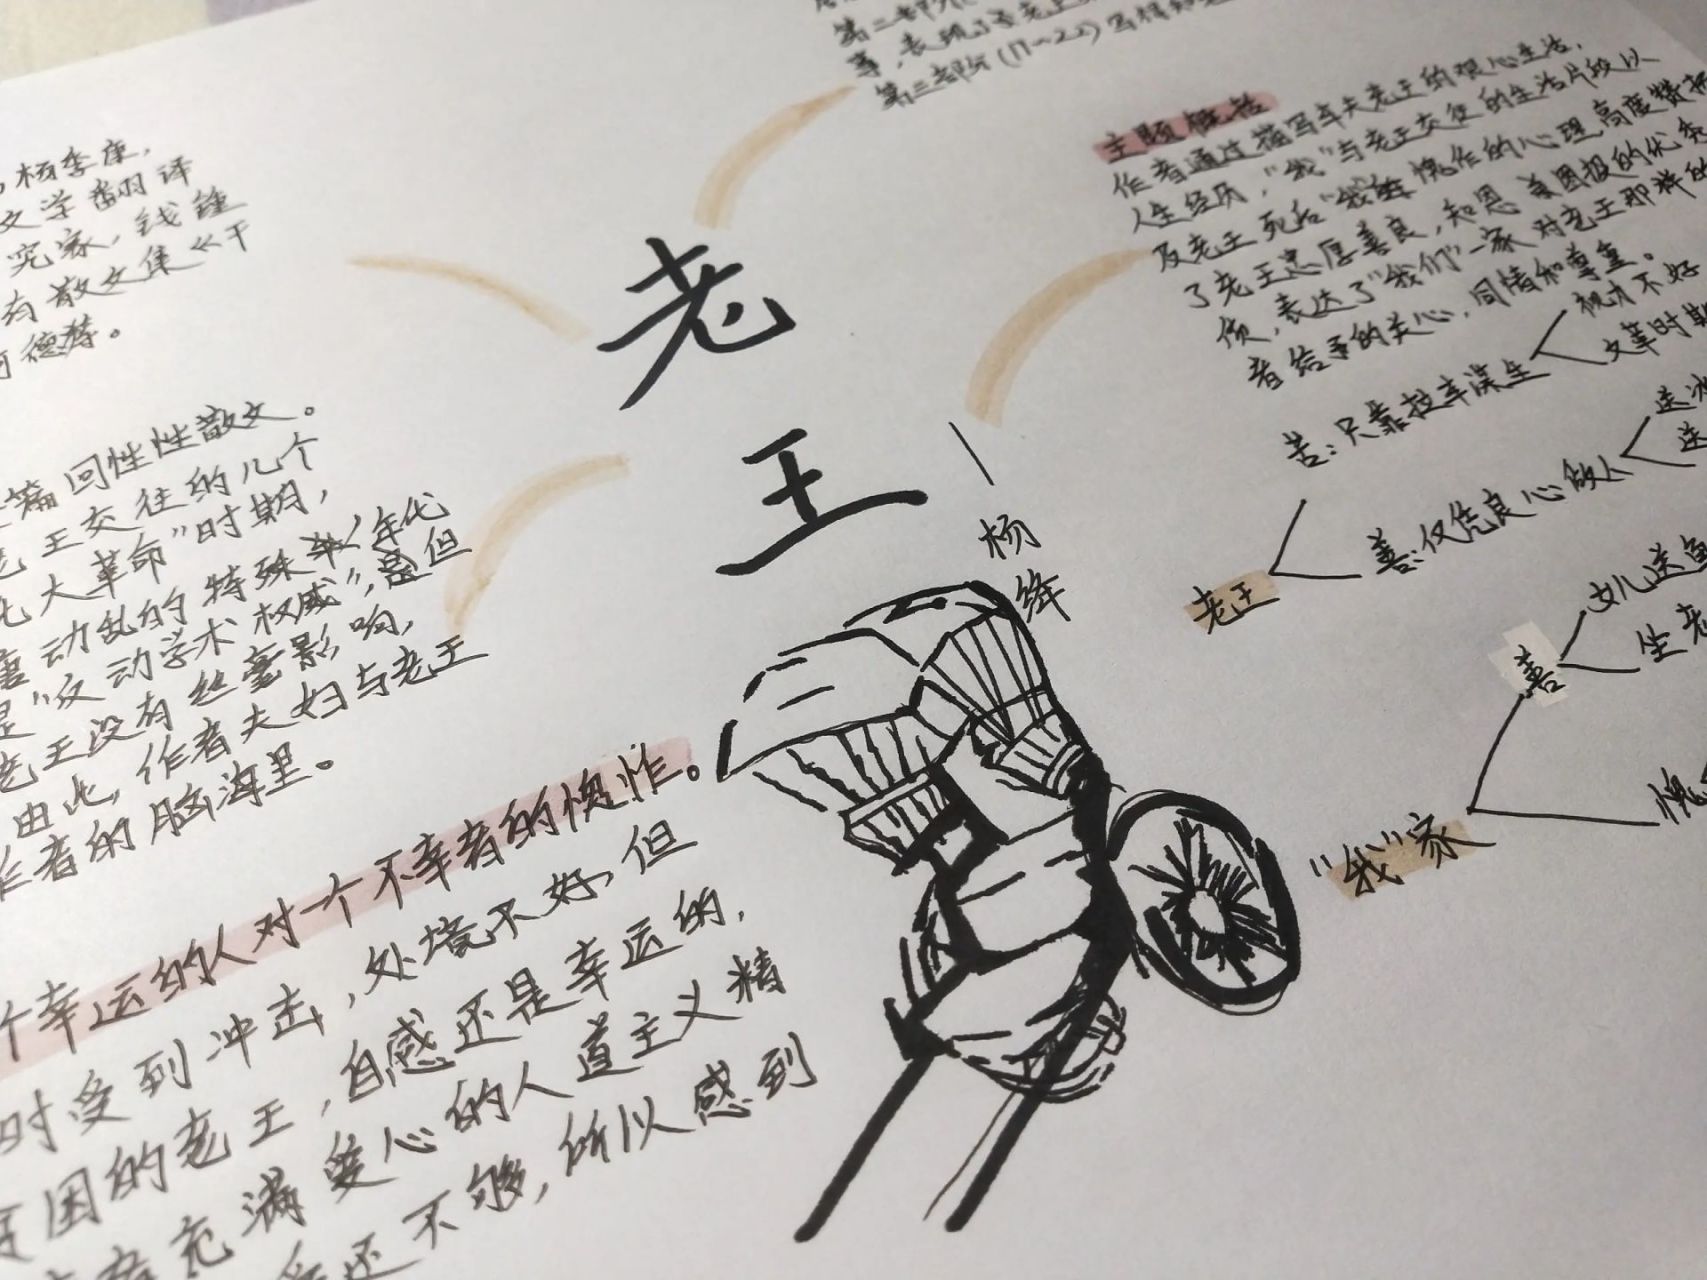 老
王
杨
绛
杨季康，
文学翻译
究家，钱锺
有散文集《干
德尊。
篇回性性散文。
老王交往的几个
化大革命”时期，
动乱的特殊年代
是“反动学术权威”，但
老王没有丝毫影响，
由此，作者夫妇与老王
作者的脑海里。
个幸运的人对一个不幸者的愧怍。
时受到冲击，处境不好，但
困的老王，自感还是幸运的，
充满爱心的人道主义精
还不够，所以感到
第二部分
事，表现了
第三部分（17~22）写得知
主题概括
作者通过描写车夫老王的艰心生活，
人生经历，“我”与老王交往的生活片段以
及老王死后“我”愧怍的心理，高度赞扬
了老王忠厚善良，知恩 的优秀
质，表达了“我们”一家对老王那样的
者给予的关心，同情和尊重。
苦：只靠技车谋生
视力不好
文革时期
善：仅凭良心做人
送冰
送
老王
女儿送鱼
坐老
善
愧
“我”家